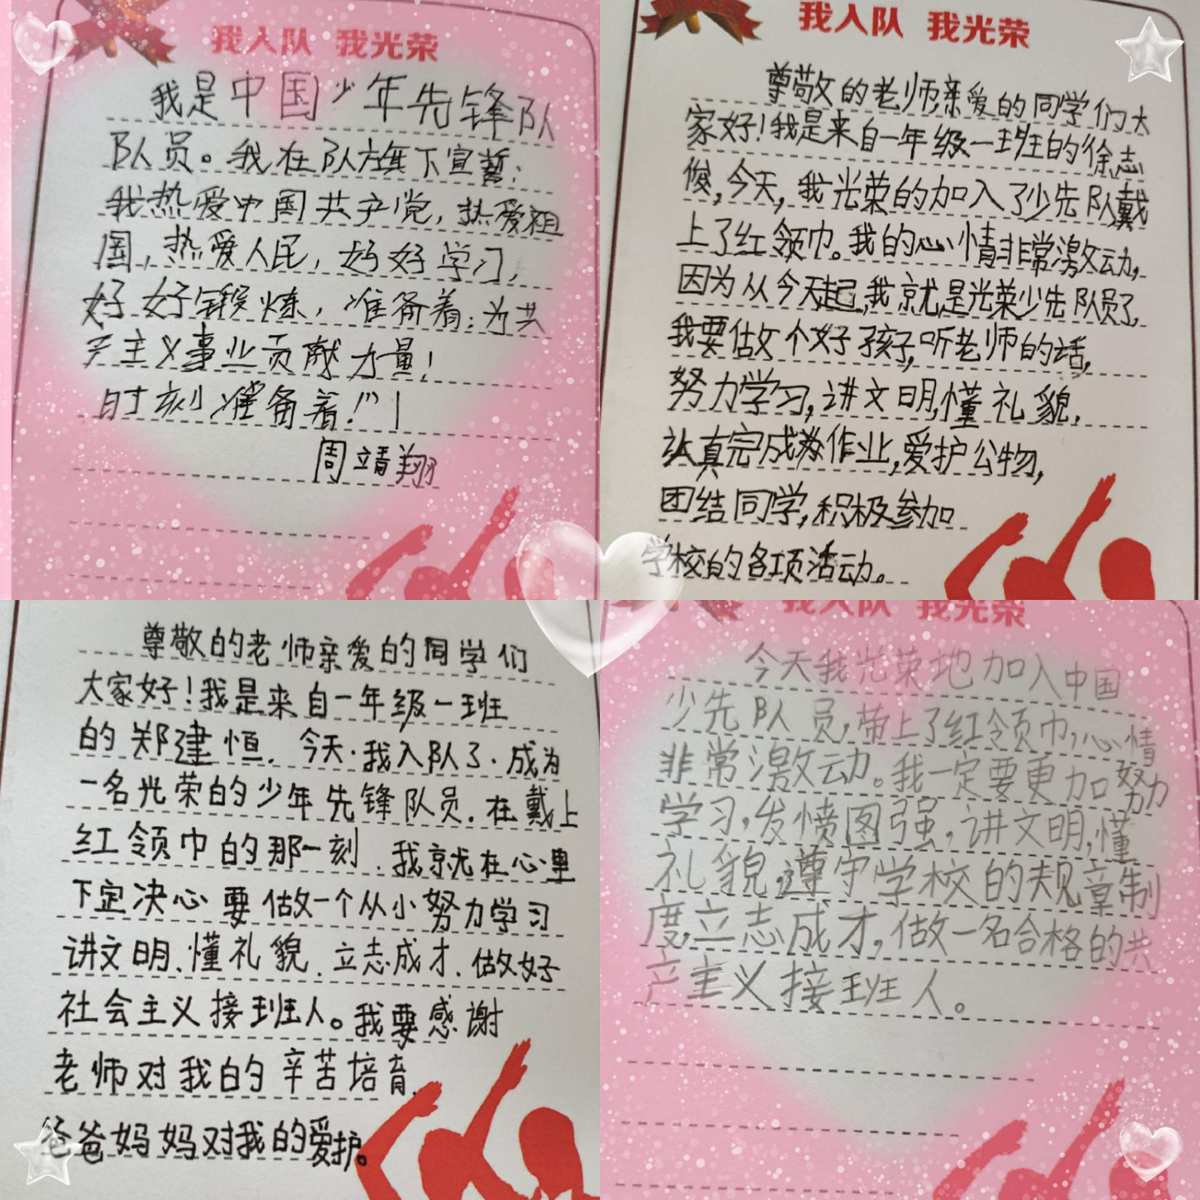 我入队 我光荣
我是中国少年先锋队
队员。我在队旗下宣誓:
我热爱中国共产党,热爱祖
国,热爱人民,好好学习,
好好锻炼,准备着:为共
产主义事业贡献力量!
时刻准备着!"
周靖翔
我入队 我光荣
尊敬的老师亲爱的同学们大
家好!我是来自一年级一班的徐志
俊,今天,我光荣的加入了少先队戴
上了红领巾。我的心情非常激动,
因为从今天起,我就是光荣少先队员了,
我要做个好孩子,听老师的话,
努力学习,讲文明,懂礼貌,
认真完成作业,爱护公物,
团结同学,积极参加
学校的各项活动。
尊敬的老师亲爱的同学们
大家好!我是来自一年级一班
的郑建恒.今天.我入队了.成为
一名光荣的少年先锋队员.在戴上
红领巾的那一刻.我就在心里
下定决心要做一个从小努力学习
讲文明、懂礼貌.立志成才、做好
社会主义接班人。我要感谢
老师对我的辛苦培育.
爸爸妈妈对我的爱护。
我入队 我光荣
今天我光荣地加入中国
少先队员,带上了红领巾,心情
非常激动。我一定要更加努力
学习,发愤图强,讲文明,懂
礼貌,遵守学校的规章制
度,立志成才,做一名合格的共
产主义接班人。